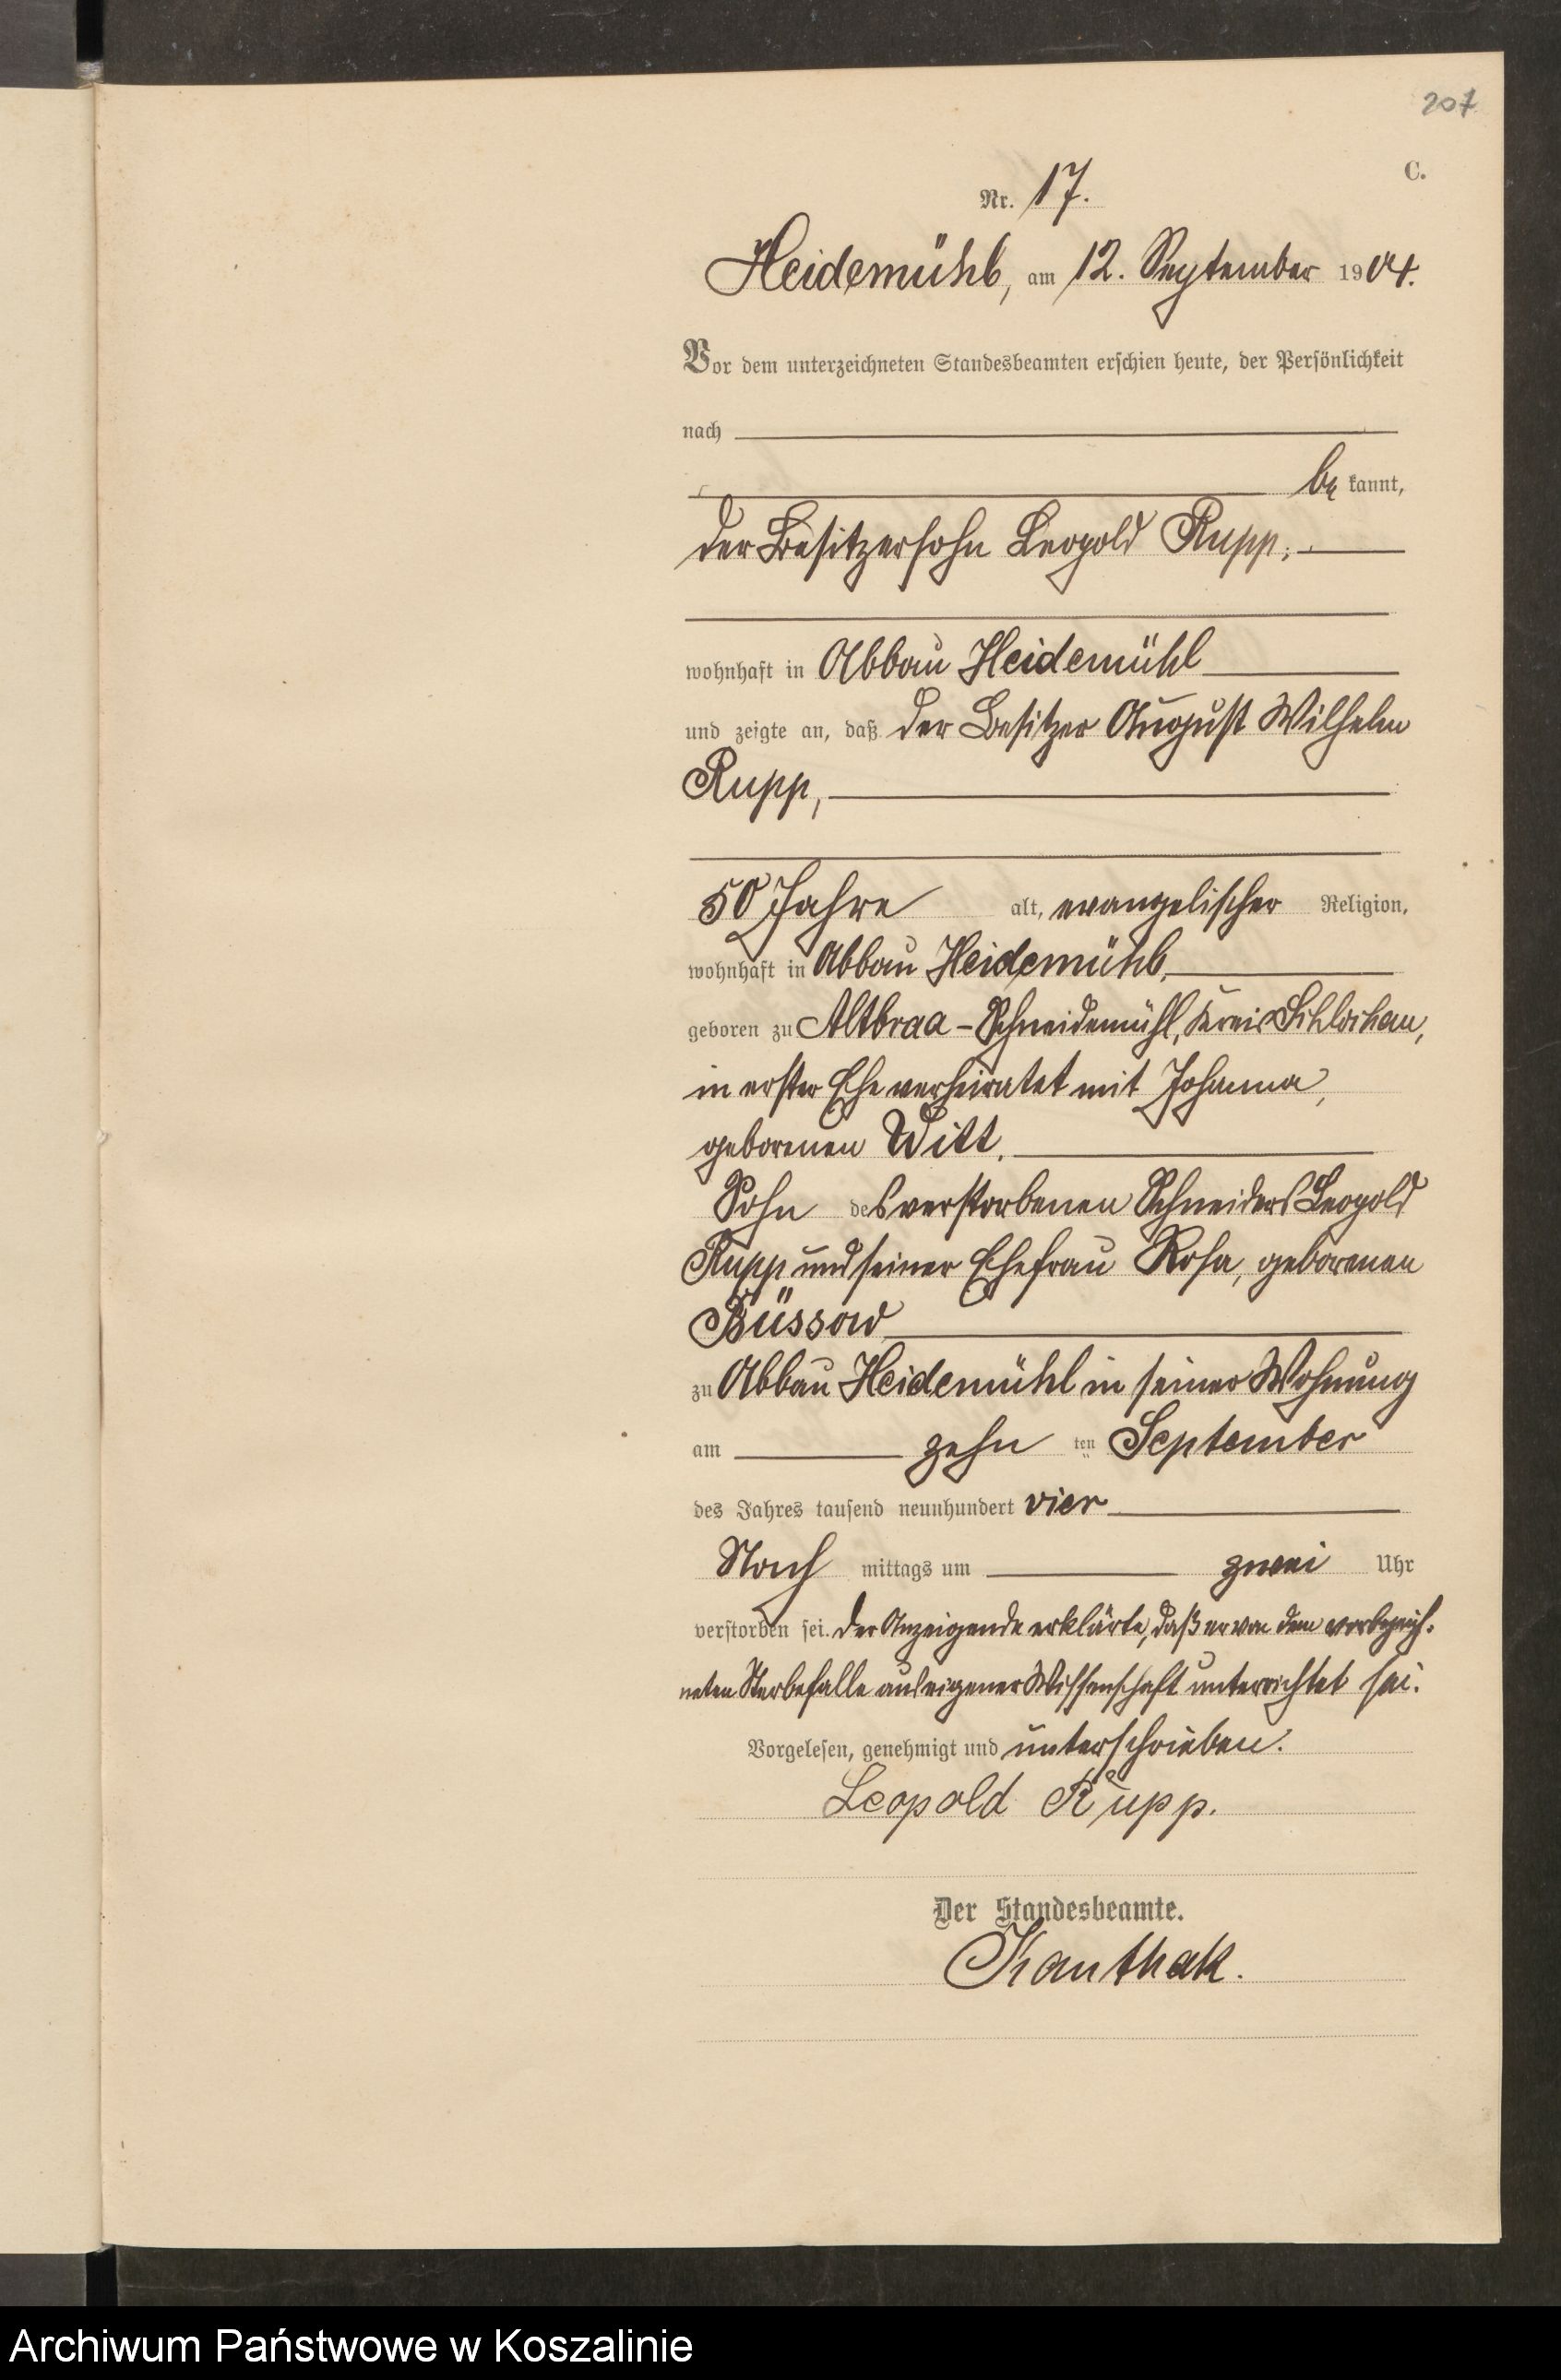 207
C.
Nr. 17.
Heidemühl, am 12. September 1904.
Vor dem unterzeichneten Standesbeamten erschien heute, der Persönlichkeit
nach
be kannt,
der Besitzersohn Leopold Rupp,
wohnhaft in Abbau Heidemühl
und zeigte an, daß der Besitzer August Wilhelm
Rupp,
50 Jahre alt, evangelischer Religion,
wohnhaft in Abbau Heidemühl,
geboren zu Altbraa-Schneidemühl, Kreis Schlochau,
in erster Ehe verheiratet mit Johanna,
geborenen Witt.
Sohn des verstorbenen Schneiders Leopold
Rupp und seiner Ehefrau Rosa, geborenen
Büssow
zu Abbau Heidemühl in seiner Wohnung
am zehn ten September
des Jahres tausend neunhundert vier
Nach mittags um zwei Uhr
verstorben sei. Der Anzeigende erklärte, daß er von dem vorbezeich-
neten Sterbefalle aus eigener Wissenschaft unterrichtet sei.
Vorgelesen, genehmigt und unterschrieben.
Leopold Rupp.
Der Standesbeamte.
Kanthak.
Archiwum Państwowe w Koszalinie